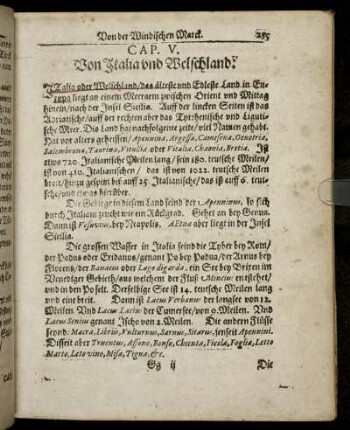 Von der Windischen Marck. 235
CAP. V.
Von Italia vnd Welschland.
ITalia oder Welschland/das älteste vnd Edleste Land in Eu-
ropa ligt an einem Meerarm zwischen Orient vnd Mittag
hinein/nach der Insel Sicilia. Auff der lincken Seiten ist das
Adriatische/auff der rechten aber das Tyrrhenische vnd Ligusti-
sche Meer. Dis Land hat nachfolgente zeite/viel Namen gehabt.
Dan vor alters geheissen/Apennina, Argessa, Camesena, Oenotria,
Salembrona, Taurina, Vitulia oder Vitalia, Chania, Bretia. Ist
etwa 720. Italianische Meilen lang/sein 180. teutsche Meilen/
ist von 410. Italianischen/ das ist von 1022. teutsche Meilen
breit/ auff 25 Italianische/das ist 6. teut-
sche/
Die Gebirge in diesem Land seind der Apenninus, so sich
durch Italiam zeucht wie ein Rückgrad. Gehet an bey Genua.
Dann ist Vesuvius, bey Neapolis. AEtna aber liegt in der Insel
Sicilia.
Die grossen Wasser in Italia seind die Tyber bey Rom/
der Padus oder Eridanus/genant Po bey Padua/der Arnus bey
Florens/der Banacus oder Lago digarda, ein See bey Trient im
Venediger Gebieth/aus welchem der Fluß Mincius entstehet/
vnd in den Po felt. Derselbige See ist 14. teutsche Meilen lang
vnd eine breit. Dann ist Lacus Verbanus der longsee von 12.
Meilen. Vnd Lacus Larius der Cumersee/von 9. Meilen. Vnd
Lacus Senius genant Ischo von 2. Meilen. Die andern Flüsse
seynd: Macra, Libris, Vulturnus, Sarnus, Silarus, jenseit Apennini.
Disseit aber Truentus, Assono, Ronso, Chienta, Ficola, Foglia, Letto
Morto, Leto vivo, Misa, Tigna, &c.
Gg ij Die